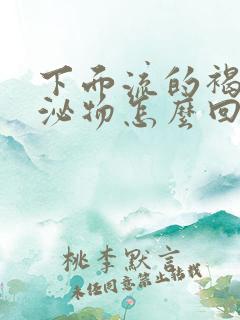 下面流的褐
泌物怎麼回
桃李默言
未经同意禁止转载